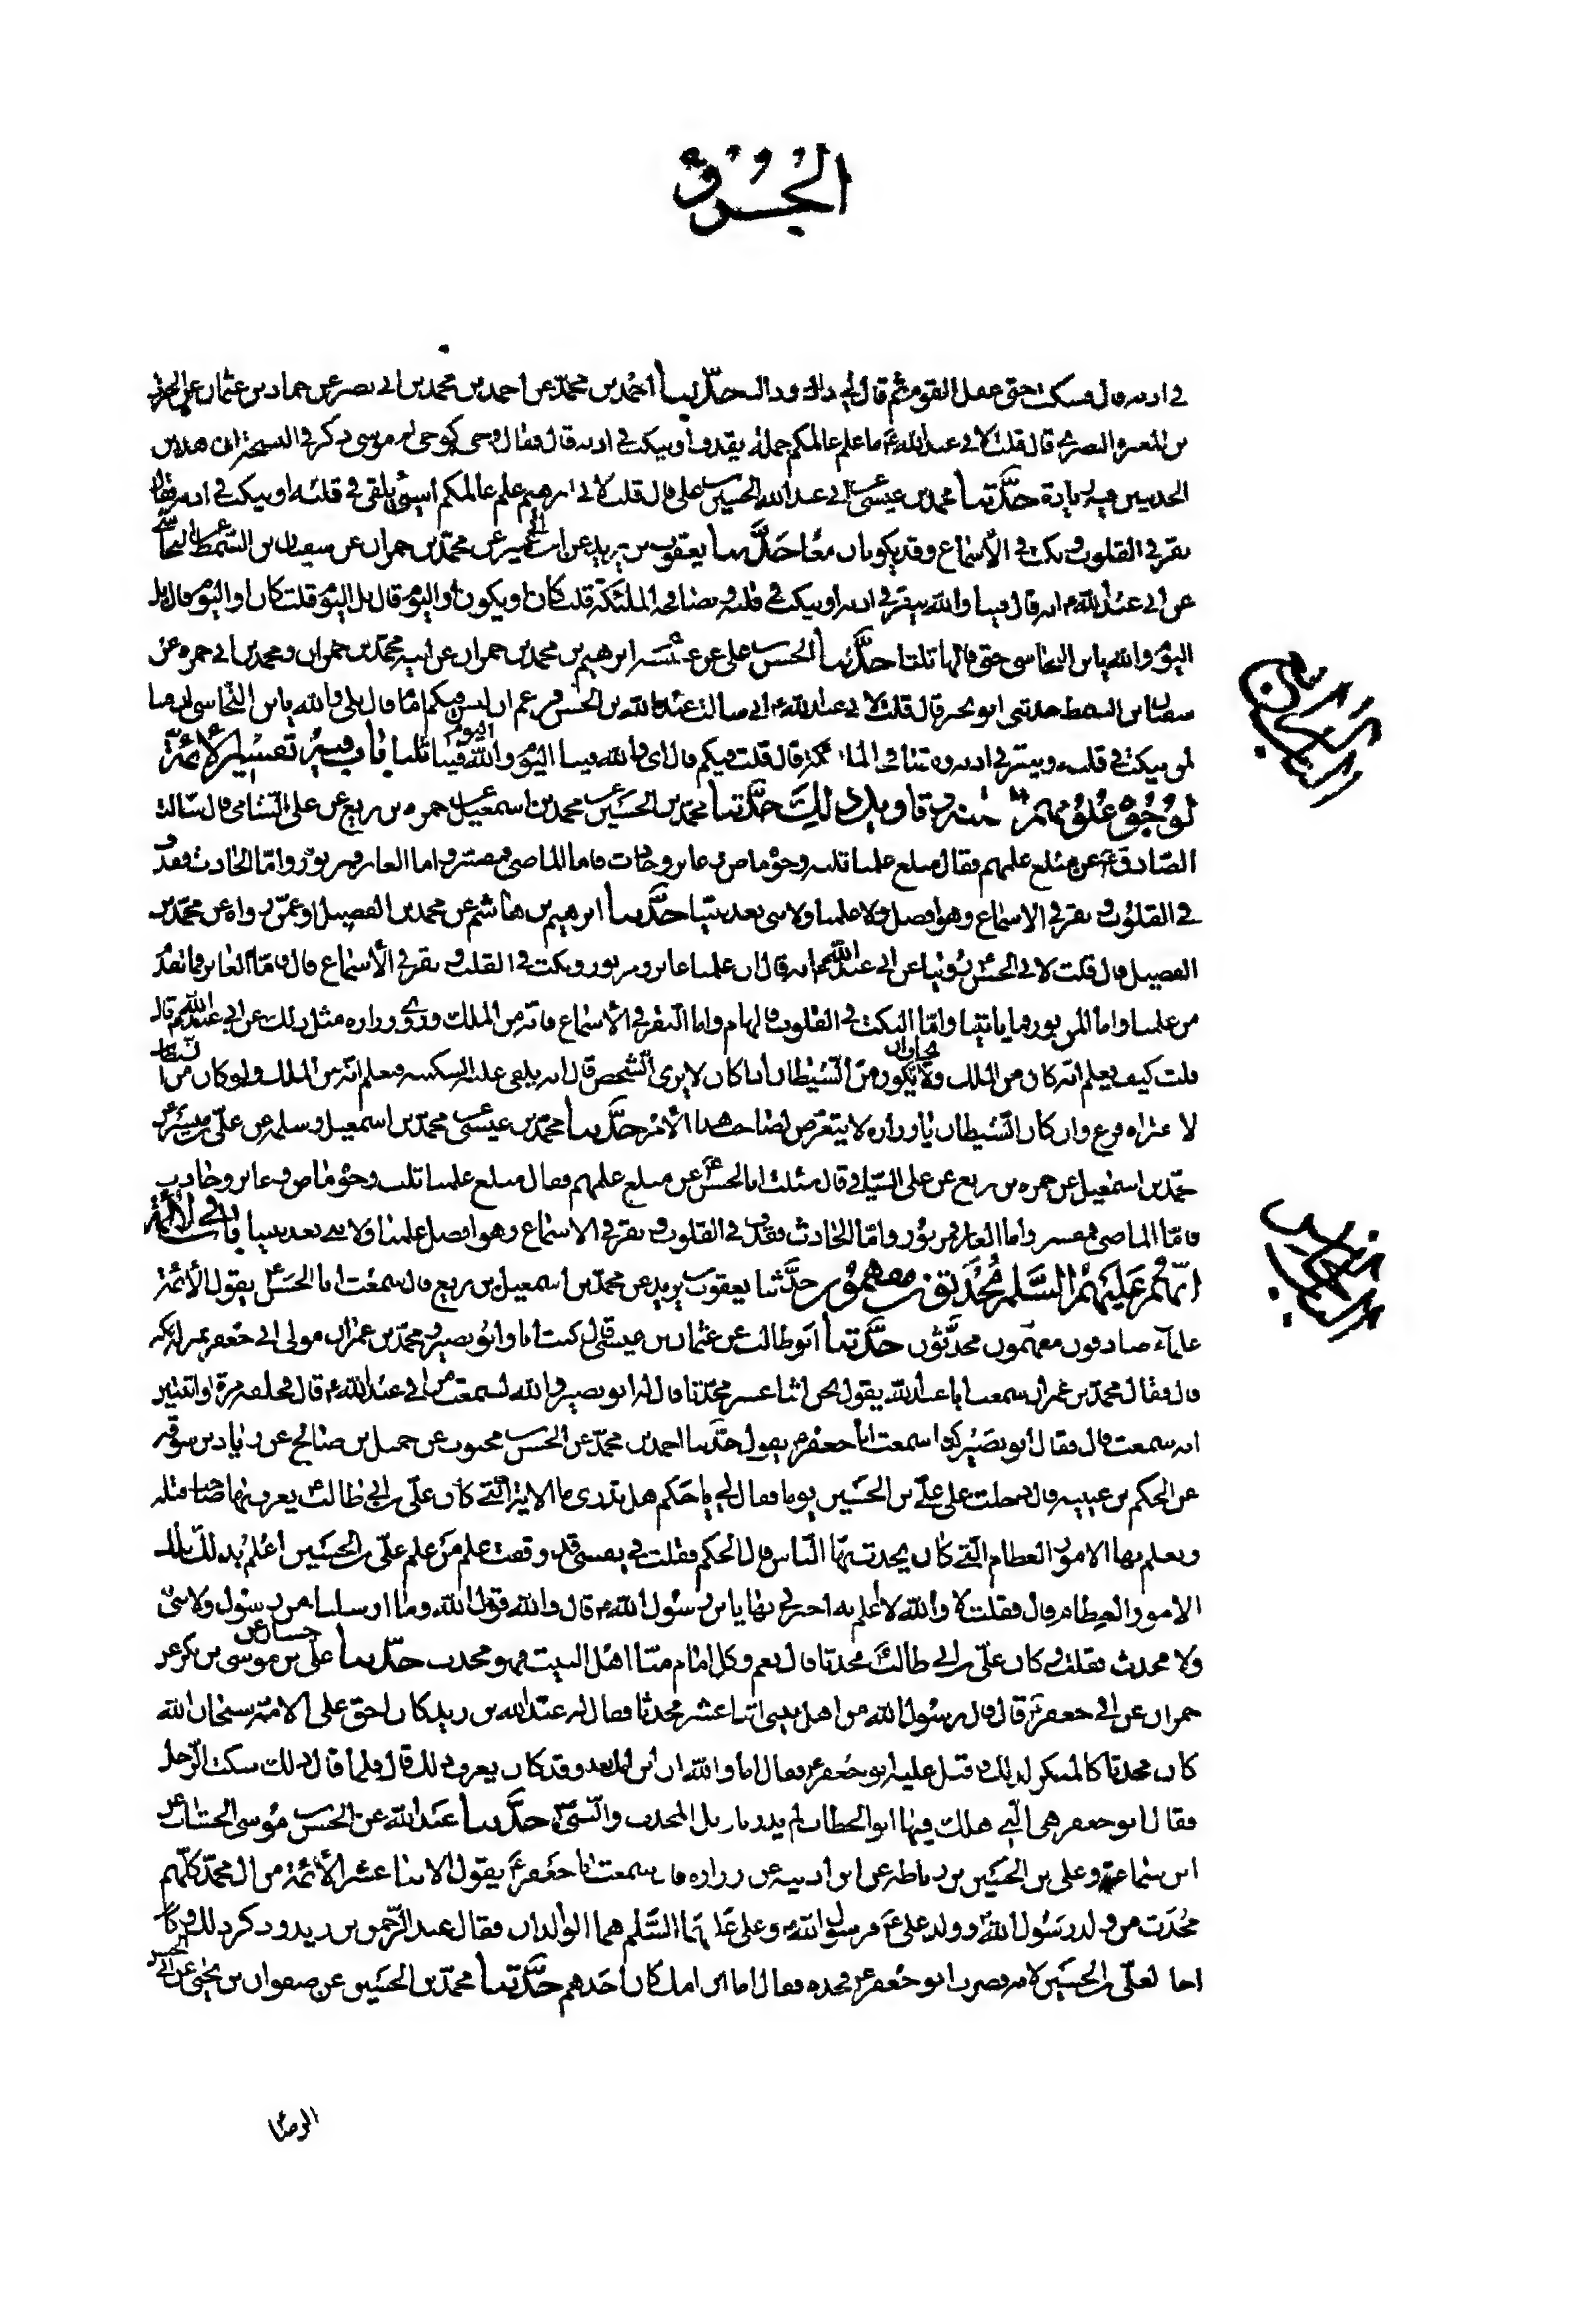 الجزو
في اذنه قال فسكت حتى غفل القوم ثم قال لي ذاك وذاك حدثنا احمد بن محمد عن احمد بن محمد بن ابي نصر عن حماد بن عثمان عن الحرث
بن المغيرة النصري قال قلت لابي عبد الله ع ما علم عالمكم جملة يقذف او ينكت في اذنه قال فقال وحي كوحي ام موسى ذكر في
الحديثين زيادة حدثنا محمد بن عيسى عن ابي عبد الله الحسين علي قال قلت لابي ابرهيم علم عالمكم اشئ يلقى في قلبه او ينكت في اذنه فقال
نقر في القلوب ونكت في الأسماع وقد يكونان معا حدثنا يعقوب بن يزيد عن محمد بن حمران عن سفيان بن السمط
عن ابي عبد الله ع انه قال فينا والله ينقر في اذنه او ينكت في قلبه وتصافحه الملئكة قلت كان او يكون او اليوم قال بل اليوم قلت كان او اليوم قال بل
اليوم والله يابن النجاشي حتى قالها ثلثا حدثنا الحسن علي عن عنبسة ابرهيم بن محمد بن حمران عن ابيه محمد بن حمران ومحمد بن ابي حمزة عن
سفيان بن السمط حدثني ابو بحير قال قلت لابي عبد الله ع اني سالت عبد الله بن الحسن فزعم ان ليس فيكم امام قال بلى والله يابن النجاشي ان فينا
لمن ينكت في قلبه وينقر في اذنه وتصافحه الملئكة قال قلت فيكم قال اي والله فينا اليوم والله فينا اليوم ثلثا باب فيه تفسير الأئمة
لوجوه علومهم الثلثة وتاويل ذلك حدثنا محمد بن الحسين عن محمد بن اسمعيل عن حمزة بن بزيع عن علي السائي قال سالت
الصادق ع عن مبلغ علمهم فقال مبلغ علمنا ثلثة وجوه ماض وغابر وحادث فاما الماضي فمفسر واما الغابر فمزبور واما الحادث فقذف
في القلوب ونقر في الاسماع وهو افضل علمنا ولا نبي بعد نبينا حدثنا ابرهيم بن هاشم عن محمد بن الفضيل او عمن رواه عن محمد بن
الفضيل قال قلت لابي الحسن ع روينا عن ابي عبد الله ع انه قال ان علمنا غابر ومزبور ونكت في القلب ونقر في الأسماع قال فاما الغابر فما تقدم
من علمنا واما المزبور فما ياتينا واما النكت في القلوب فالهام واما النقر في الأسماع فانه من الملك وروى زرارة مثل ذلك عن ابي عبد الله ع قال
قلت كيف يعلم انه كان من الملك ولا يخاف ان يكون من الشيطان اذا كان لا يرى الشخص قال انه يلقى عليه السكينة فيعلم انه من الملك ولو كان من الشيطان
لاعتراه فزع وان كان الشيطان يا زرارة لا يتعرض لصاحب هذا الأمر حدثنا محمد بن عيسى عن محمد بن اسمعيل وسلمة عن علي بن ميسر عن
محمد بن اسمعيل عن حمزة بن بزيع عن علي السائي قال سئلت ابا الحسن ع عن مبلغ علمهم فقال مبلغ علمنا ثلث وجوه ماض وغابر وحادث
فاما الماضي فمفسر واما الغابر فمزبور واما الحادث فقذف في القلوب ونقر في الاسماع وهو افضل علمنا ولا نبي بعد نبينا باب في الأئمة
انهم عليهم السلم محدثون مفهمون حدثنا يعقوب يزيد عن محمد بن اسمعيل بن بزيع قال سمعت ابا الحسن ع يقول الأئمة
علماء صادقون مفهمون محدثون حدثنا ابو طالب عن عثمان بن عيسى قال كنت انا وابو بصير ومحمد بن عمران مولى ابي جعفر بمنزله بمكة
قال فقال محمد بن عمران سمعت ابا عبد الله يقول نحن اثنا عشر محدثا قال له ابو بصير والله لسمعت من ابي عبد الله ع قال فحلفه مرة او اثنتين
انه سمعت قال فقال ابو بصير كذا سمعت ابا جعفر ع يقول حدثنا احمد بن محمد عن الحسن محبوب عن جميل بن صالح عن زياد بن سوقة
عن الحكم بن عيينه قال دخلت على علي بن الحسين يوما فقال لي يا حكم هل تدري ما الاية التي كان علي بن ابي طالب يعرف بها صاحب قتله
ويعلم بها الامور العظام التي كان يحدث بها الناس قال الحكم فقلت في نفسي قد وقعت علم من علم علي بن الحسين اعلم بذلك تلك
الامور العظام قال فقلت لا والله لا اعلم به اخبرني بها يا بن رسول الله ع قال والله قول الله وما ارسلنا من رسول ولا نبي
ولا محدث فقلت وكان علي بن ابي طالب محدثا قال نعم وكل امام منا اهل البيت فهو محدث حدثنا علي بن حسان عن موسى بن بكر عن
حمران عن ابي جعفر ع قال قال رسول الله من اهل بيتي اثنا عشر محدثا فقال له عبد الله بن زيد كان اخو علي لامه سبحان الله
كان محدثا كالمنكر لذلك فاقبل عليه ابو جعفر ع فقال اما والله ان ابن امك بعد وقد كان يعرف ذلك قال فلما قال ذلك سكت الرجل
فقال ابو جعفر هي التي هلك فيها ابو الخطاب لم يدر تاويل المحدث والنبي حدثنا عبد الله عن الحسن موسى الخشاب عن
ابن سماعة وعلي بن الحسين بن رباط عن ابن اذينه عن زراره قال سمعت ابا جعفر ع يقول الاثنا عشر الأئمة من ال محمد كلهم
محدث من ولد رسول الله وولد علي ع فرسول الله ع وعلي عليهما السلم هما الوالدان فقال عبد الرحمن بن زيد وذكر ذلك وكان
اخا لعلي بن الحسين لامه فضرب ابو جعفر ع فخذه فقال اما ابن امك كان احدهم حدثنا محمد بن الحسين عن صفوان بن يحيى عن ابي الحسن
الرضا